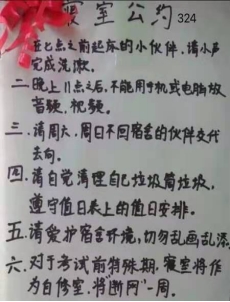 寝室公约 324
在七点之前起床的小伙伴，请小声
完成洗漱。
二、晚上11点之后，不能用手机或电脑放
音频，视频。
三、请周六、周日不回宿舍的伙伴交代
去向。
四、请自觉清理自己垃圾筒垃圾，
遵守值日表上的值日安排。
五、请爱护宿舍环境，切勿乱画乱添
六、对于考试前特殊期，寝室将作
为自修室，将"断网"一周。